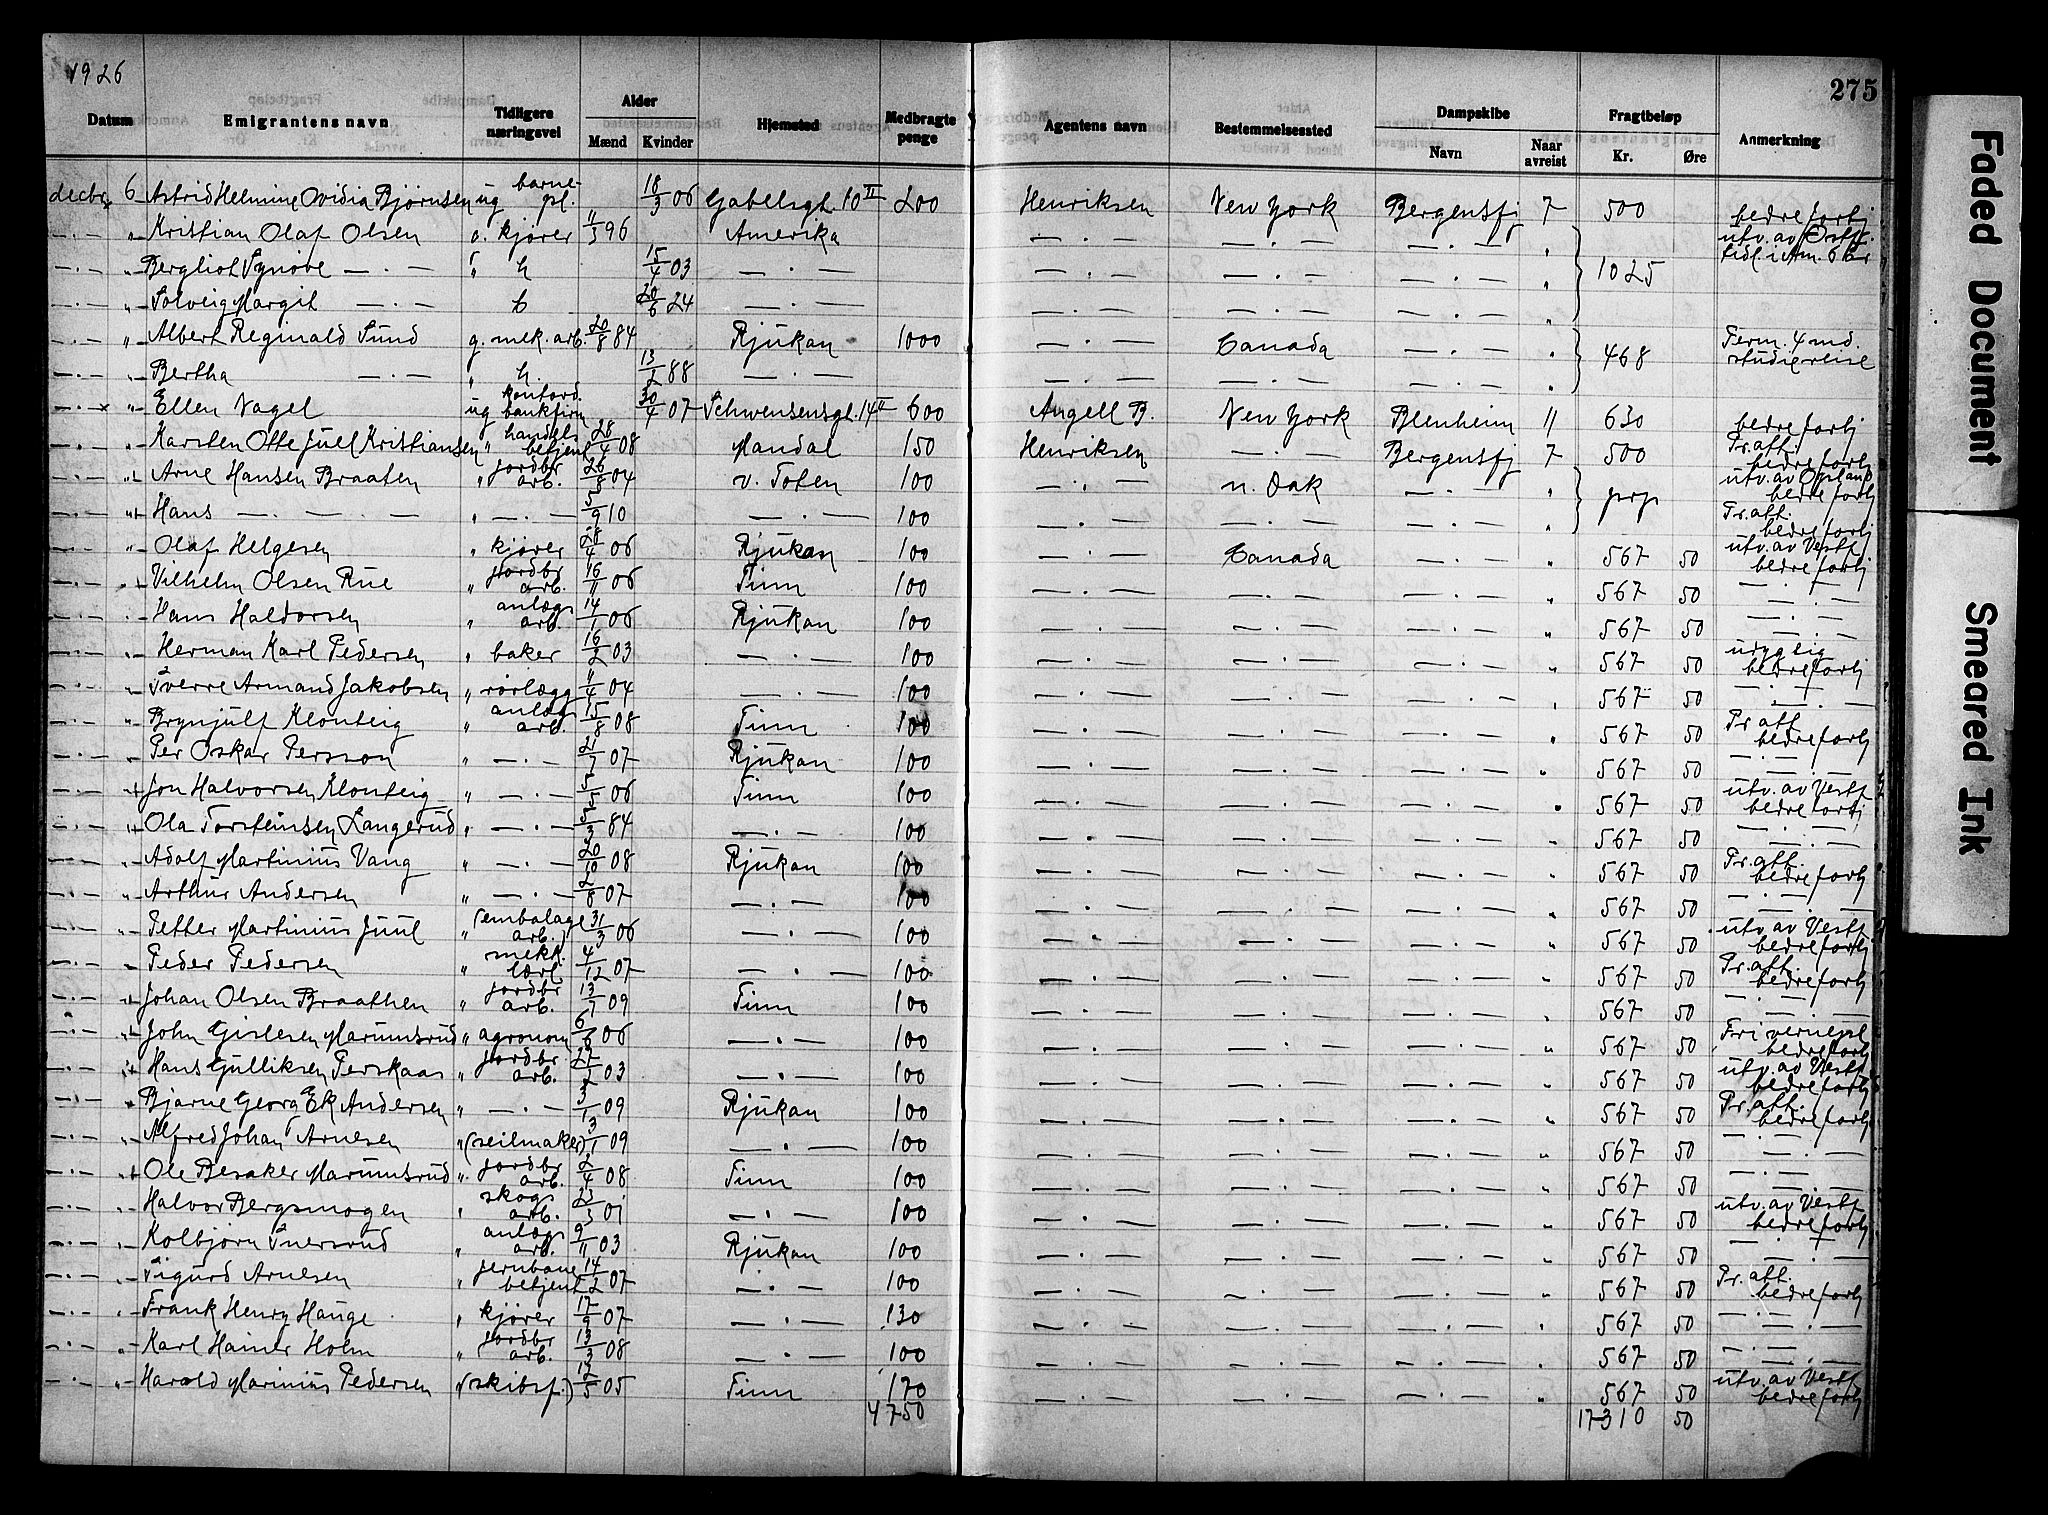 1926
275
Datum Emigrantens navn Tidligere næringsvei Alder Mænd Kvinder Hjemsted Medbragte penge Agentens navn Bestemmelsessted Dampskibe Navn Naar avreist Fragtbeløp Kr. Øre Anmerkning
decbr 6 Astrid Helmine Ovidia Bjørnsen ug barnepl. 18/3 06 Gabelsgt 10 II 200 Henriksen New York Bergensfj 7 500 bedre forhj
" Kristian Olaf Olsen g. kjører 11/3 96 Amerika — . — — . — — . — " 1025 utv. av Østf. tidl. i Am. 6 år
" Bergliot Synøve — . — " h 15/4 03 — . — — . — — . — — . — "
" Solveig Margit — . — b 20/6 24 — . — — . — — . — — . — "
" Albert Reginald Sund g. mek. arb. 20/8 84 Rjukan 1000 — . — Canada — . — " 468 Ferm. 4 md. studiereise
" Bertha — . — " h. 13/2 88 — . — — . — — . — — . — "
x " Ellen Nagel ug kontord. bankfirm 30/4 07 Schwensensgt. 14 II 600 Angell B. New York Blenheim 11 630 bedre forhj
" Karsten Otto Juel Kristiansen " handels betjent 28/4 08 Mandal 150 Henriksen — . — Bergensfj 7 500 Pr. att. bedre forhj
" Arne Hansen Braaten " jordbr arb. 26/8 04 v. Toten 100 — . — n. Dak — . — " prp utv. av Opland bedre forhj
" Hans — . — . — " — . — 5/9 10 — . — 100 — . — — . — — . — " Pr. att. bedre forhj
" Olaf Helgesen " kjører 28/4 06 Rjukan 100 — . — Canada — . — " 567 50 utv. av Vestf bedre forhj
" Vilhelm Olsen Rue " jordbr arb. 16/11 06 Tinn 100 — . — — . — — . — " 567 50 — . —
" Hans Haldorsen " anlægs arb. 14/1 06 Rjukan 100 — . — — . — — . — " 567 50 — . —
" Herman Karl Pedersen " baker 16/2 03 — . — 100 — . — — . — — . — " 567 50 udygtig bedre forhj
" Sverre Armand Jakobsen " rørlægg 11/4 04 — . — 100 — . — — . — — . — " 567 50 — . —
" Brynjulf Klonteig " anlægs arb. 15/8 08 Tinn 100 — . — — . — — . — " 567 50 Pr att. bedre forhj
" Per Oskar Persson " — . — 21/7 07 Rjukan 100 — . — — . — — . — " 567 50 — . —
" Jon Halvorsen Klonteig " — . — 5/5 06 Tinn 100 — . — — . — — . — " 567 50 utv. av Vestf bedre forhj
" Ola Torsteinsen Langerud " — . — 5/3 84 — . — 100 — . — — . — — . — " 567 50 — . —
" Adolf Martinius Vang " — . — 20/10 08 Rjukan 100 — . — — . — — . — " 567 50 Pr. att. bedre forhj
" Arthur Andersen " — . — 2/8 07 — . — 100 — . — — . — — . — " 567 50 — . —
" Petter Martinius Juul " (embalage arb.) 31/3 06 — . — 100 — . — — . — — . — " 567 50 utv. av Vestf bedre forhj
" Peder Pedersen " mekk. lærl. 4/12 07 — . — 100 — . — — . — — . — " 567 50 Pr. att. bedre forhj
" Johan Olsen Braathen " jordbr arb. 13/7 09 Tinn 100 — . — — . — — . — " 567 50 — . —
" John Gislesen Marumsrud " agronom 6/6 06 — . — 100 — . — — . — — . — " 567 50 Fri vernepl bedre forhj
" Hans Gulliksen Perskaas " jordbr. arb. 27/2 03 — . — 100 — . — — . — — . — " 567 50 utv. av Vestf bedre forhj
" Bjarne Georg Ek Andersen " — . — 3/1 09 Rjukan 100 — . — — . — — . — " 567 50 Pr. att. bedre forhj
" Alfred Johan Arnesen " (seilmaker) 3/1 09 — . — 100 — . — — . — — . — " 567 50 — . —
" Ole Besaker Marumsrud " jordbr arb. 2/4 08 Tinn 100 — . — — . — — . — " 567 50 — . —
" Halvor Bergsmogen " skogs arb. 23/3 01 — . — 100 — . — — . — — . — " 567 50 utv. av Vestf bedre forhj
" Kolbjørn Snersrud " anlægs arb. 9/11 03 Rjukan 100 — . — — . — — . — " 567 50 — . —
" Sigurd Arnesen " jernbane betjent 14/2 07 — . — 100 — . — — . — — . — " 567 50 Pr. att. bedre forhj
" Frank Henry Hauge " kjører 17/9 07 — . — 130 — . — — . — — . — " 567 50 — . —
" Karl Hainer Holm " jordbr arb. 13/3 08 — . — 100 — . — — . — — . — " 567 50 — . —
" Harald Marinius Pedersen " (skibsf.) 12/5 05 Tinn 170 — . — — . — — . — " 567 50 utv. av Vestf bedre forhj
4750 17310 50
Faded Document
Smeared Ink